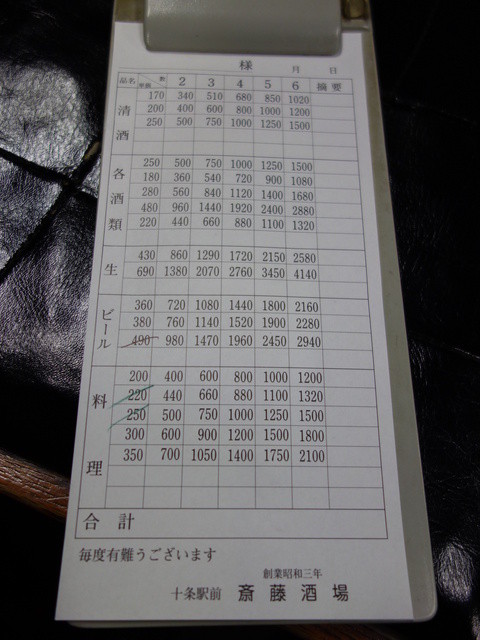 様 月 日
品名 単価 数 2 3 4 5 6 摘要
清酒
170 340 510 680 850 1020
200 400 600 800 1000 1200
250 500 750 1000 1250 1500
各酒類
250 500 750 1000 1250 1500
180 360 540 720 900 1080
280 560 840 1120 1400 1680
480 960 1440 1920 2400 2880
220 440 660 880 1100 1320
生
430 860 1290 1720 2150 2580
690 1380 2070 2760 3450 4140
ビール
360 720 1080 1440 1800 2160
380 760 1140 1520 1900 2280
490 980 1470 1960 2450 2940
料理
200 400 600 800 1000 1200
220 440 660 880 1100 1320
250 500 750 1000 1250 1500
300 600 900 1200 1500 1800
350 700 1050 1400 1750 2100
合計
毎度有難うございます
創業昭和三年
十条駅前 斎藤酒場